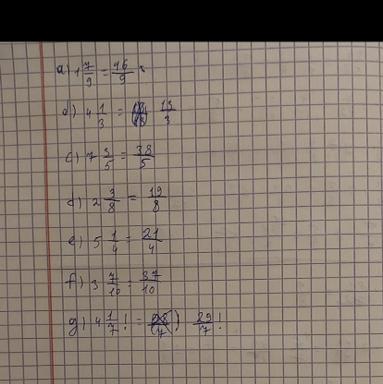 a) 1 7/9 = 16/9
d) 4 1/3 = 13/3
c) 7 3/5 = 38/5
d) 2 3/8 = 19/8
e) 5 1/4 = 21/4
f) 3 7/10 = 37/10
g) 4 1/7 ! = 29/7 !